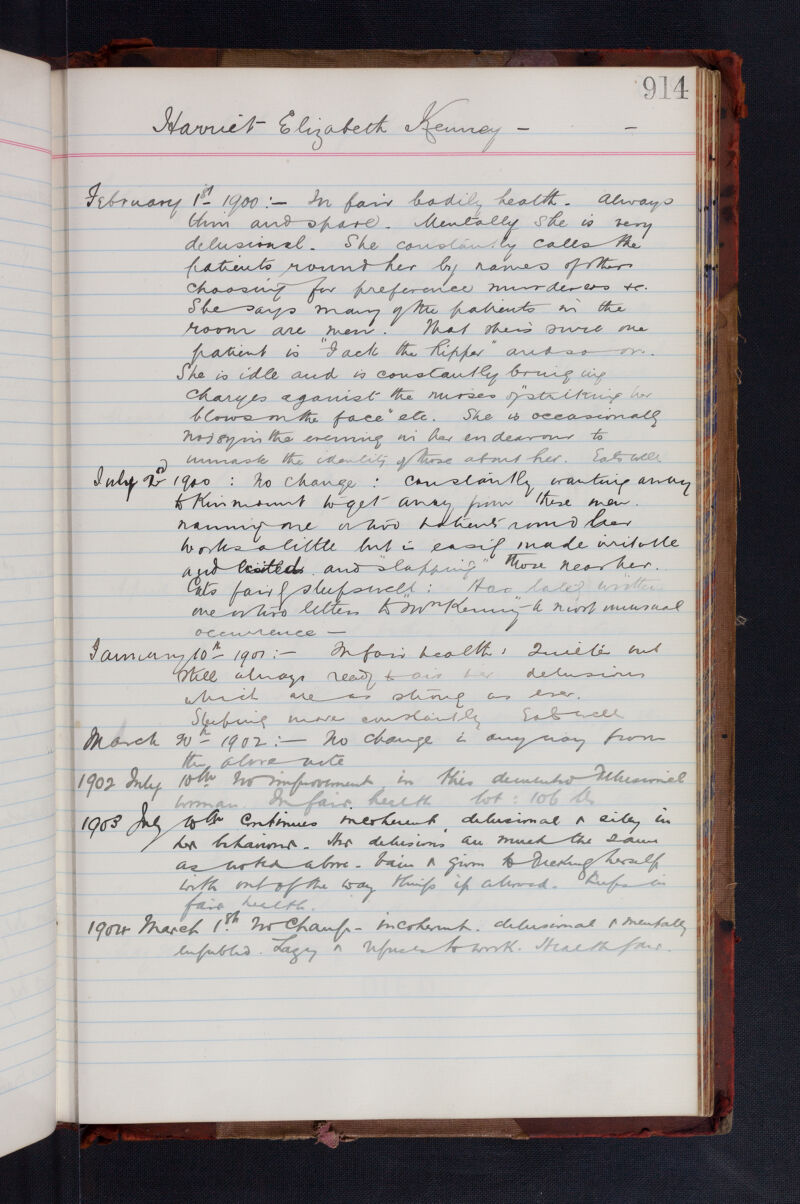 914
Harriet Elizabeth Kenney –      –
February 1st 1900 :– In fair bodily health. Always
thin and spare. Mentally she is very
delusional. She constantly calls the
patients round her by names of others
choosing for preference murderers &c.
She says many of the patients in the
room are men. That she is sure one
patient is "Jack the Ripper" and so on.
She is idle and is constantly bringing
charges against the nurses of "striking her
blows on the face" etc. She is occasionally
noisy in the evening in her endeavour to
unmask the identity of those about her. Eats well
July 2nd 1900 : No change : constantly wanting away
to Kinmount to get away from these men.
naming one or two patients round her
works a little but is easily made irritable
and and "slapping" those near her.
Eats fairly sleeps well : Has lately written
one or two letters to "Mr Kenny" a most unusual
occurrence –
January 10th 1901 :– In fair health, Quieter but
still always ready to air her delusions
which are as strong as ever.
Sleeping more constantly Eats well
March 20th 1902 :– No change in any way from
the above note
1902 July 10th No improvement in this demented delusional
woman. In fair health wt : 106 lbs
1903 July 10th Continues incoherent delusional & silly in
her behaviour. Her delusions are much the same
as noted above. Vain & given to decking herself
with out of the way things if allowed. Keeps in
fair health.
1904 March 1st No change – incoherent. delusional & mentally
enfeebled. Lazy & refuses to work. Health fair.